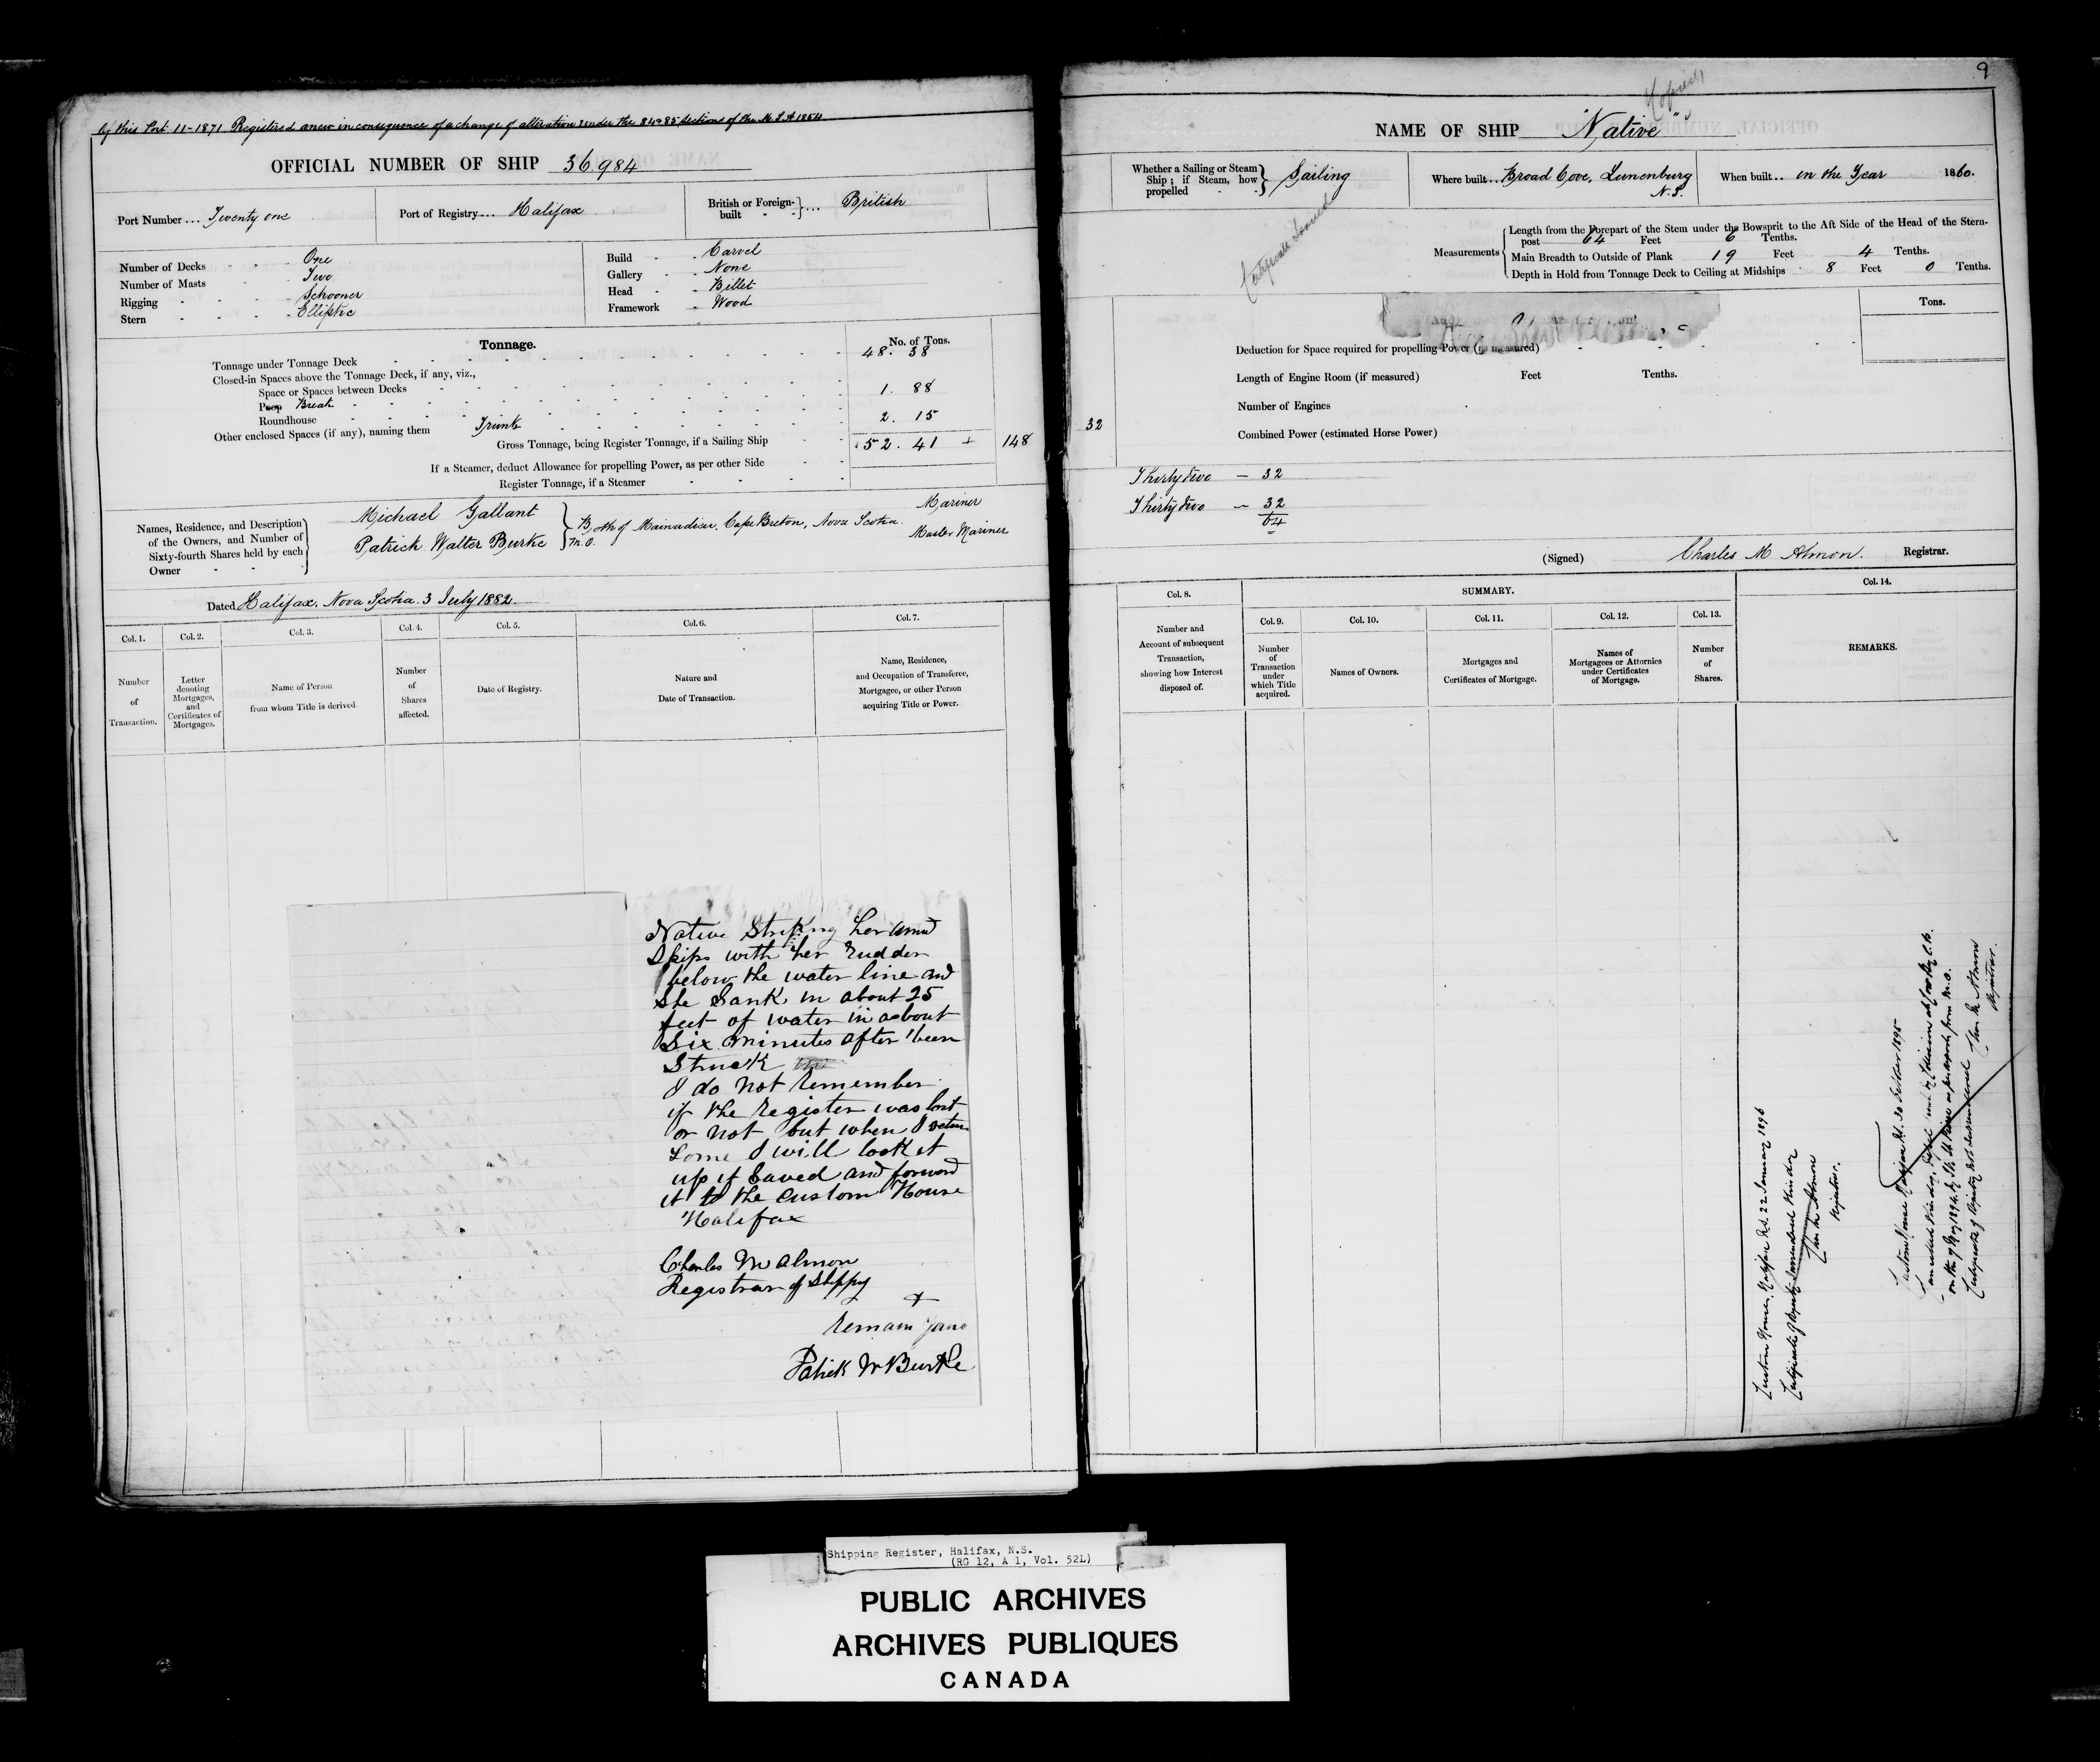 of this Port 11-1871 Registered anew in consequence of a change of alteration under the 84 & 85 sections of the M. S. A 1854
OFFICIAL NUMBER OF SHIP 36.984
Port Number ... Twenty one
Port of Registry ... Halifax
British or Foreign-built } ... British
Number of Decks - One
Number of Masts - Two
Rigging - Schooner
Stern - Elliptic
Build - Carvel
Gallery - None
Head - Billet
Framework - Wood
Tonnage.
No. of Tons.
Tonnage under Tonnage Deck 48. 38
Closed-in Spaces above the Tonnage Deck, if any, viz.,
Space or Spaces between Decks
Poop Break 1. 88
Roundhouse
Other enclosed Spaces (if any), naming them Trunk 2. 15
Gross Tonnage, being Register Tonnage, if a Sailing Ship 52. 41 + 148
If a Steamer, deduct Allowance for propelling Power, as per other Side
Register Tonnage, if a Steamer
Names, Residence, and Description of the Owners, and Number of Sixty-fourth Shares held by each Owner
Michael Gallant
Patrick Walter Burke M.O.
Both of Mainadieu, Cape Breton, Nova Scotia.
Mariner
Master Mariner
Dated Halifax, Nova Scotia. 3 July 1882.
Col. 1. Col. 2. Col. 3. Col. 4. Col. 5. Col. 6. Col. 7.
Number of Transaction.
Letter denoting Mortgages, and Certificates of Mortgages.
Name of Person from whom Title is derived.
Number of Shares affected.
Date of Registry.
Nature and Date of Transaction.
Name, Residence, and Occupation of Transferee, Mortgagee, or other Person acquiring Title or Power.
Native Striking her amid
Ships with her rudder
below the water line and
She Sank in about 25
feet of water in about
Six minutes after been
Struck
I do not remember
if the register was lost
or not but when I return
home I will look it
up if Saved and forward
it to the Custom House
Halifax
Charles M Almon
Registrar of Shippg
I
remain yours
Patrick W Burke
9
Copied
NAME OF SHIP "Native"
Whether a Sailing or Steam Ship; if Steam, how propelled } Sailing
Where built ... Broad Cove, Lunenburg N.S.
When built .. in the Year 1860.
Certificate Issued
Measurements
Length from the Forepart of the Stem under the Bowsprit to the Aft Side of the Head of the Stern-
post 64 Feet 6 Tenths.
Main Breadth to Outside of Plank 19 Feet 4 Tenths.
Depth in Hold from Tonnage Deck to Ceiling at Midships 8 Feet 0 Tenths.
Tons.
Deduction for Space required for propelling Power (as measured)
Length of Engine Room (if measured) Feet Tenths.
Number of Engines
32
Combined Power (estimated Horse Power)
Thirty two — 32
Thirty two — 32
64
(Signed) Charles M Almon. Registrar.
Col. 8.
Number and Account of subsequent Transaction, showing how Interest disposed of.
SUMMARY.
Col. 9. Col. 10. Col. 11. Col. 12. Col. 13.
Number of Transaction under which Title acquired.
Names of Owners.
Mortgages and Certificates of Mortgage.
Names of Mortgagees or Attornies under Certificates of Mortgage.
Number of Shares.
Col. 14.
REMARKS.
Custom House, Halifax N.S. 22 January 1896
Certificate of Registry surrendered this day
Chas M Almon
Registrar.
Custom House Halifax N.S. 30 October 1895
Certificate of Registry not surrendered Chas M Almon
Registrar.
Shipping Register, Halifax, N.S.
(RG 12, A 1, Vol. 52L)
PUBLIC ARCHIVES
ARCHIVES PUBLIQUES
CANADA